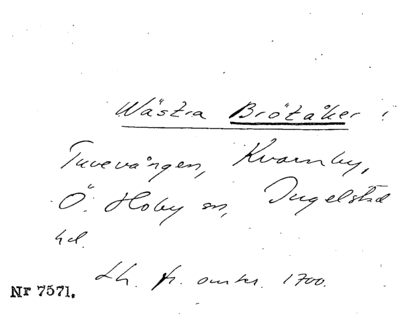 Wästra Brötåker i
Tuvevången, Kvarnby,
Ö. Hoby sn, Ingelstad
hd.
Lh. fr. omkr. 1700.
Nr 7571.